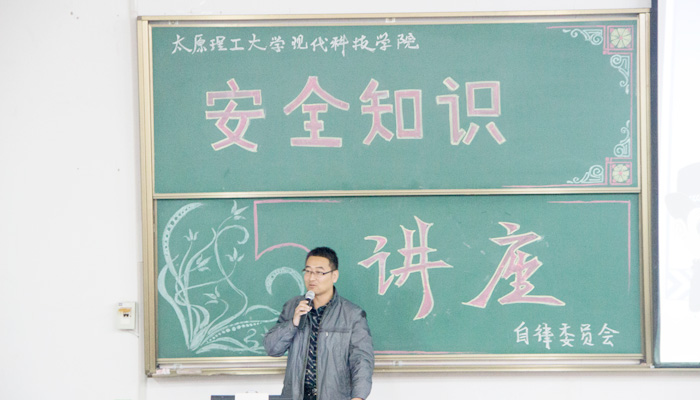 太原理工大学现代科技学院
安全知识
讲座
自律委员会